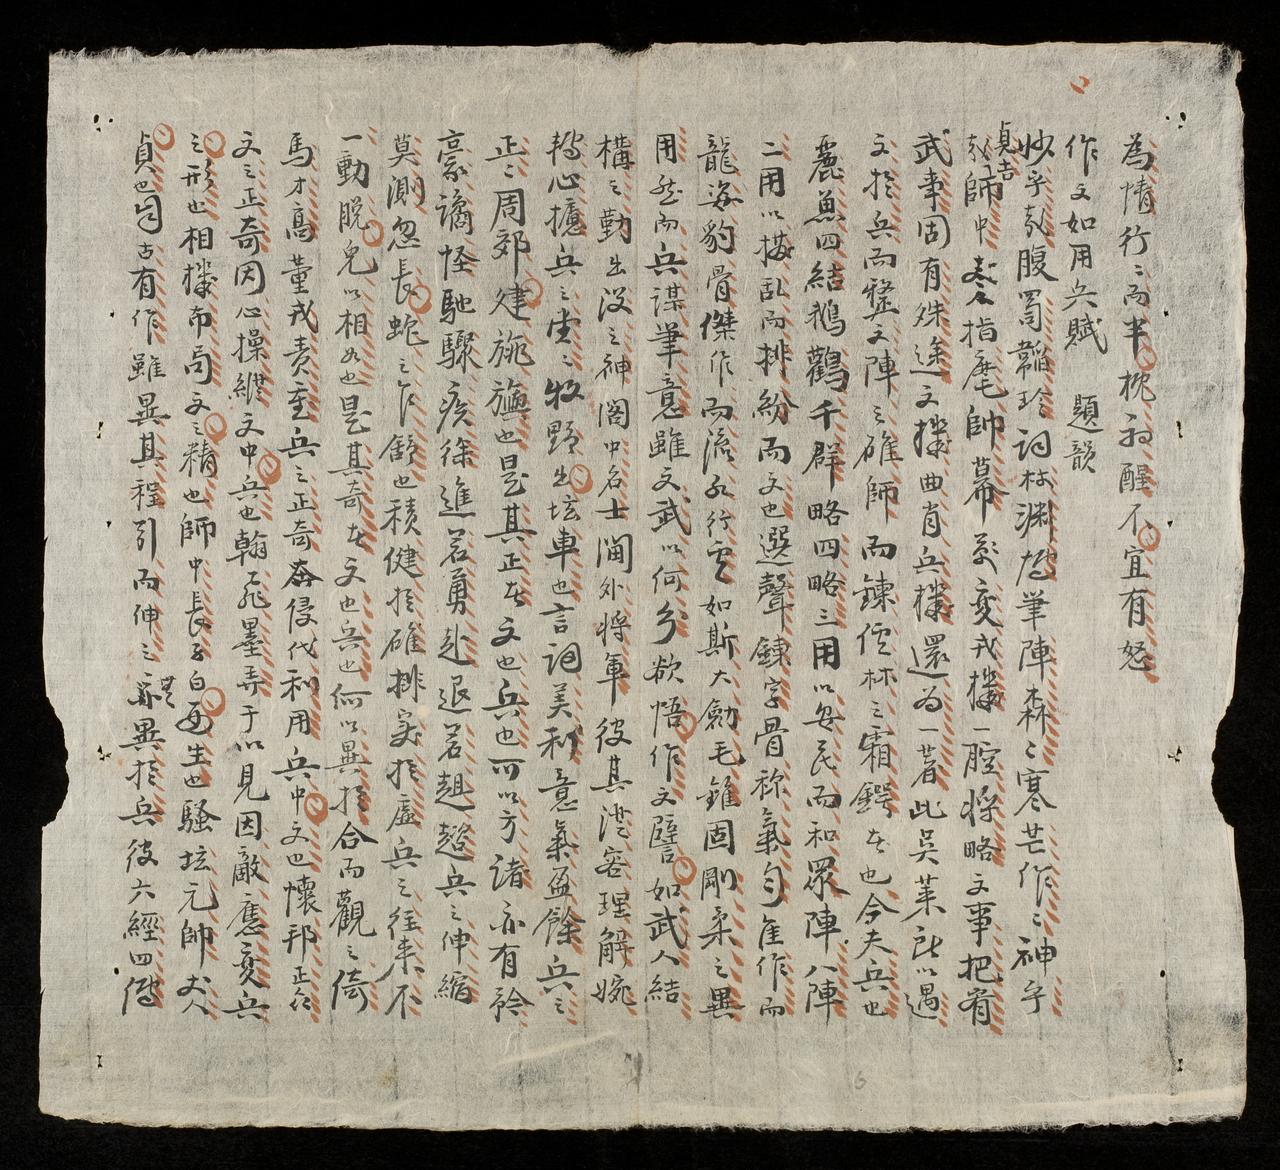 為情行〻而半枕初醒不宜有怒
作文如用兵賦 題韻
妙乎哉腹笥韜玲詞林淵浩筆陣森〻寒芒作〻神乎
哉師中貞吉指麾帥幕變戎機一腔將略文事把有
武事固有殊途文機曲肖兵機還為一著此吳萊所以遇
文於兵而整文陣之確師而鍊儒林之霜鍔者也今夫兵也
麗魚四結鵝鸛千群略四略三用以安民而和眾陣八陣
二用以撥乱而排紛而文也選聲鍊字骨祢氣勻隹作而
龍姿豹骨傑作而流水行雲如斯大劍毛錐固剛柔之異
用然而兵謀筆意雖文武以何分欲悟作文譬如武人結
構之勤出沒之神閣中名士閫外將軍彼其從容理解婉
轉心擴兵之堂〻牧野出坛車也言詞美利意氣盈餘兵之
正〻周郊建旐旟也是其正者文也兵也可以方諸亦有矜
豪譎怪馳驟疾徐進若勇赴退若趄趦兵之伸縮
莫測忽長蛇之乍舒也積健於確排實於虛兵之往来不
一動脫兔以相如也是其奇者文也兵也何以異於合而觀之倚
馬才高董戎責重兵之正奇奔侵伐利用兵中文也懷邦正行
文之正奇因心操縱文中兵也翰飛墨弄于以見因敵應變兵
之形也相機布局文之精也師中長子白面生也騷坛元帥丈人
貞也自古有作雖異其程引而伸之豈亦異於兵彼六經四傳